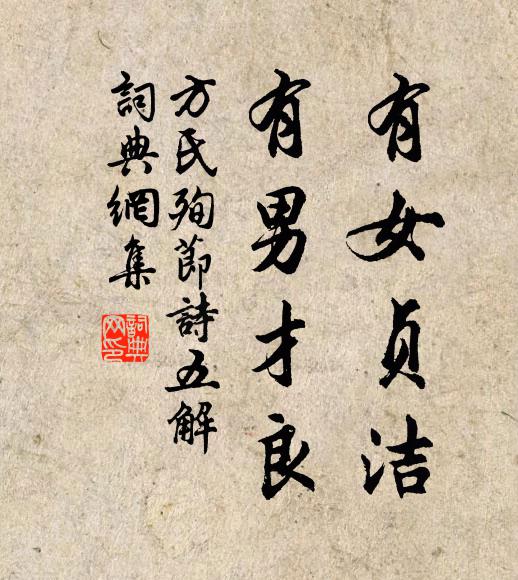 有女贞洁
有男才良
方氏殉節詩五解
詞典網集
詞典
网印